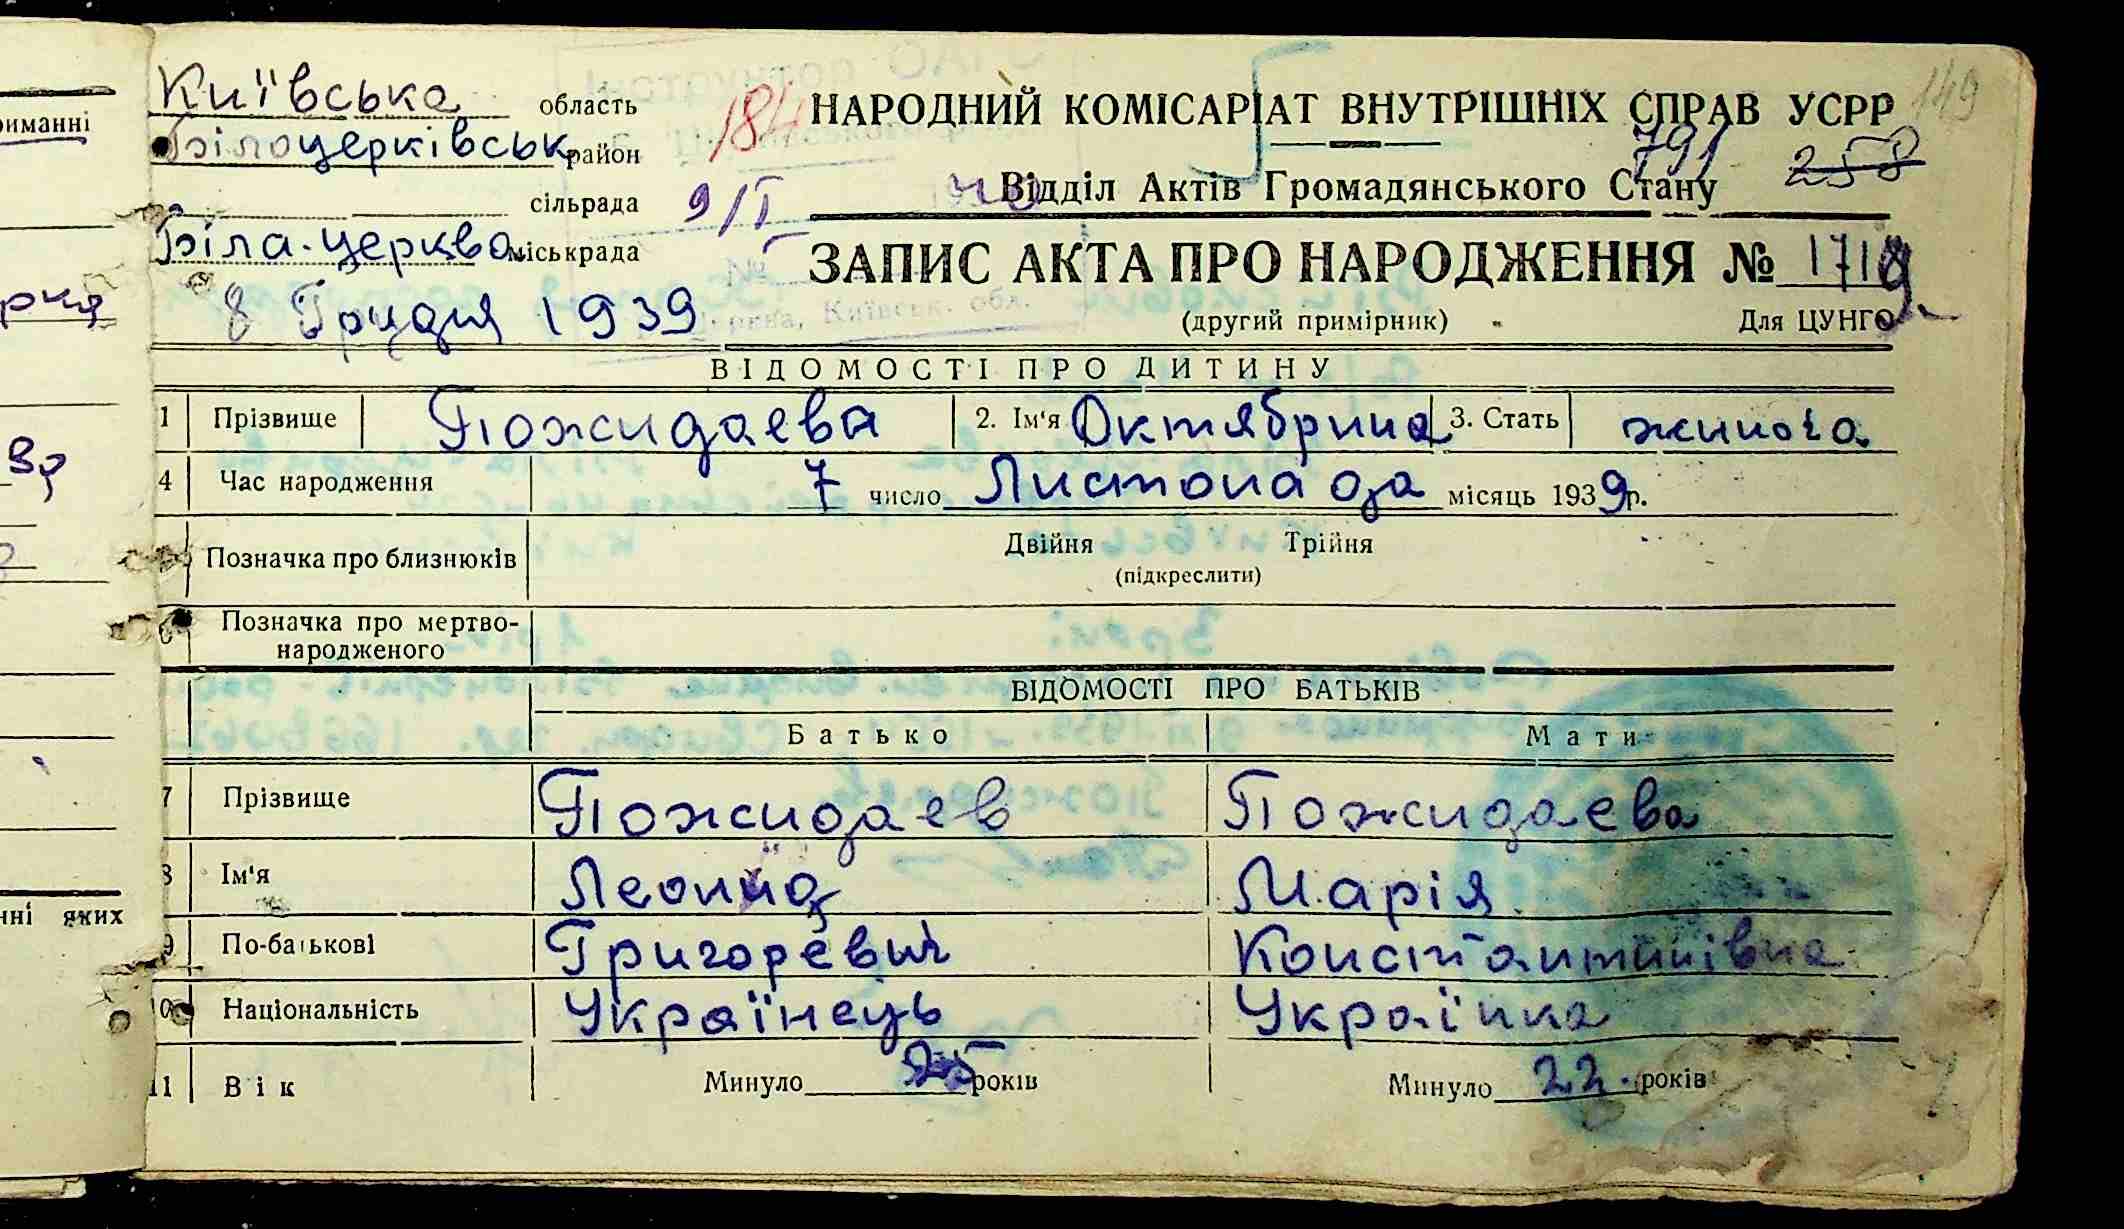 Київська область
Білоцерківськ. район
сільрада
Біла-Церква міськрада
8 Грудня 1939
184
9/І
149
НАРОДНИЙ КОМІСАРІАТ ВНУТРІШНІХ СПРАВ УСРР
791 258
Відділ Актів Громадянського Стану
ЗАПИС АКТА ПРО НАРОДЖЕННЯ №
(другий примірник) Для ЦУНГО
ВІДОМОСТІ ПРО ДИТИНУ
1 Прізвище Пожидаева 2. Ім'я Октябрина 3. Стать жиноча
4 Час народження 7 число Листопада місяць 1939р.
Позначка про близнюків Двійня Трійня
(підкреслити)
6 Позначка про мертво-
народженого
ВІДОМОСТІ ПРО БАТЬКІВ
Батько Мати
7 Прізвище Пожидаев Пожидаева
8 Ім'я Леонид Марія
9 По-батькові Григоревич Константинівна
10 Національність Українець Українка
11 Вік Минуло 25 років Минуло 22 років
риманні
нні яких